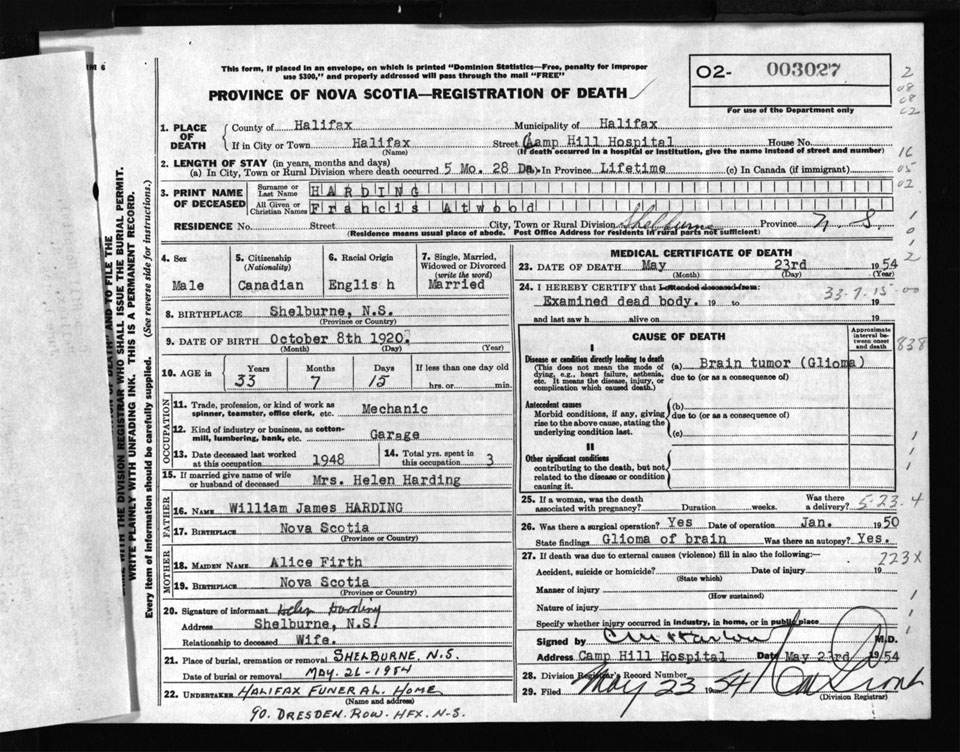 This form, if placed in an envelope, on which is printed "Dominion Statistics—Free, penalty for improper
use $300," and properly addressed will pass through the mail "FREE"
PROVINCE OF NOVA SCOTIA—REGISTRATION OF DEATH
02- 003027
For use of the Department only
2
08
08
02
16
05
02
1. PLACE OF DEATH
County of Halifax Municipality of Halifax
If in City or Town Halifax Street Camp Hill Hospital House No.
(Name) (If death occurred in a hospital or institution, give the name instead of street and number)
2. LENGTH OF STAY (in years, months and days)
(a) In City, Town or Rural Division where death occurred 5 Mo. 28 Da. In Province Lifetime (c) In Canada (if immigrant)
3. PRINT NAME OF DECEASED
Surname or Last Name HARDING
All Given or Christian Names Francis Atwood
RESIDENCE No. Street City, Town or Rural Division Shelburne Province N.S.
(Residence means usual place of abode. Post Office Address for residents in rural parts not sufficient)
4. Sex
Male
5. Citizenship
(Nationality)
Canadian
6. Racial Origin
Englis h
7. Single, Married,
Widowed or Divorced
(write the word)
Married
8. BIRTHPLACE Shelburne, N.S.
(Province or Country)
9. DATE OF BIRTH October 8th 1920.
(Month) (Day) (Year)
10. AGE in Years Months Days If less than one day old
33 7 15 hrs. or min.
OCCUPATION
11. Trade, profession, or kind of work as
spinner, teamster, office clerk, etc. Mechanic
12. Kind of industry or business, as cotton-
mill, lumbering, bank, etc. Garage
13. Date deceased last worked
at this occupation 1948
14. Total yrs. spent in
this occupation 3
15. If married give name of wife
or husband of deceased Mrs. Helen Harding
FATHER
16. NAME William James HARDING
17. BIRTHPLACE Nova Scotia
(Province or Country)
MOTHER
18. MAIDEN NAME Alice Firth
19. BIRTHPLACE Nova Scotia
(Province or Country)
20. Signature of informant Helen Harding
Address Shelburne, N.S.
Relationship to deceased Wife.
21. Place of burial, cremation or removal SHELBURNE, N.S.
Date of burial or removal MAY. 26-1954
22. UNDERTAKER HALIFAX FUNERAL HOME
(Name and address)
90. DRESDEN. ROW. HFX. N-S.
MEDICAL CERTIFICATE OF DEATH
23. DATE OF DEATH May 23rd 1954
(Month) (Day) (Year)
24. I HEREBY CERTIFY that I attended deceased from:
33-7-15-00
Examined dead body. 19 to 19
and last saw h alive on 19
CAUSE OF DEATH
Approximate
interval be-
tween onset
and death
838
I
Disease or condition directly leading to death
(This does not mean the mode of
dying, e.g., heart failure, asthenia,
etc. It means the disease, injury, or
complication which caused death.)
(a) Brain tumor (Glioma)
due to (or as a consequence of)
Antecedent causes
Morbid conditions, if any, giving
rise to the above cause, stating the
underlying condition last.
(b)
due to (or as a consequence of)
(c)
II
Other significant conditions
contributing to the death, but not
related to the disease or condition
causing it.
25. If a woman, was the death
associated with pregnancy? Duration weeks. Was there
a delivery?
5-23-4
26. Was there surgical operation? Yes Date of operation Jan. 1950
State findings Glioma of brain Was there an autopsy? Yes.
27. If death was due to external causes (violence) fill in also the following:—
223X
Accident, suicide or homicide? Date of injury 19
(State which)
Manner of injury
(How sustained)
Nature of injury
Specify whether injury occurred in industry, in home, or in public place
Signed by M.D.
Address Camp Hill Hospital Date May 23rd 1954
28. Division Registrar's Record Number
29. Filed May 23 1954
(Division Registrar)
WITH THE DIVISION REGISTRAR WHO SHALL ISSUE THE BURIAL PERMIT.
WRITE PLAINLY WITH UNFADING INK. THIS IS A PERMANENT RECORD.
Every item of information should be carefully supplied. (See reverse side for instructions.)